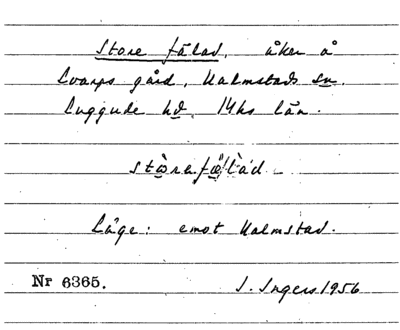 Store fälad, åker å
Svarps gård, Halmstads sn.
Luggude hd, Mhs län.
stòrafæ̀làd
Läge: emot Halmstad.
Nr 6365.
I. Ingers 1956